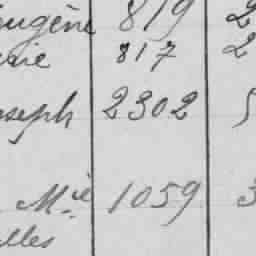 Eugène 819 2
rie 817 2
oseph 2302 5
Mie 1059 3
elles